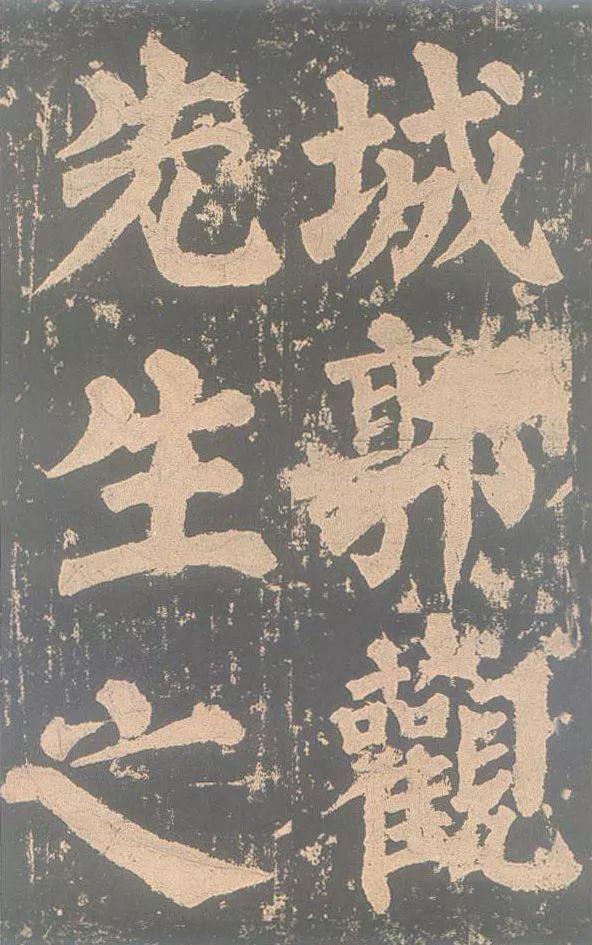 城郭觀
先生之